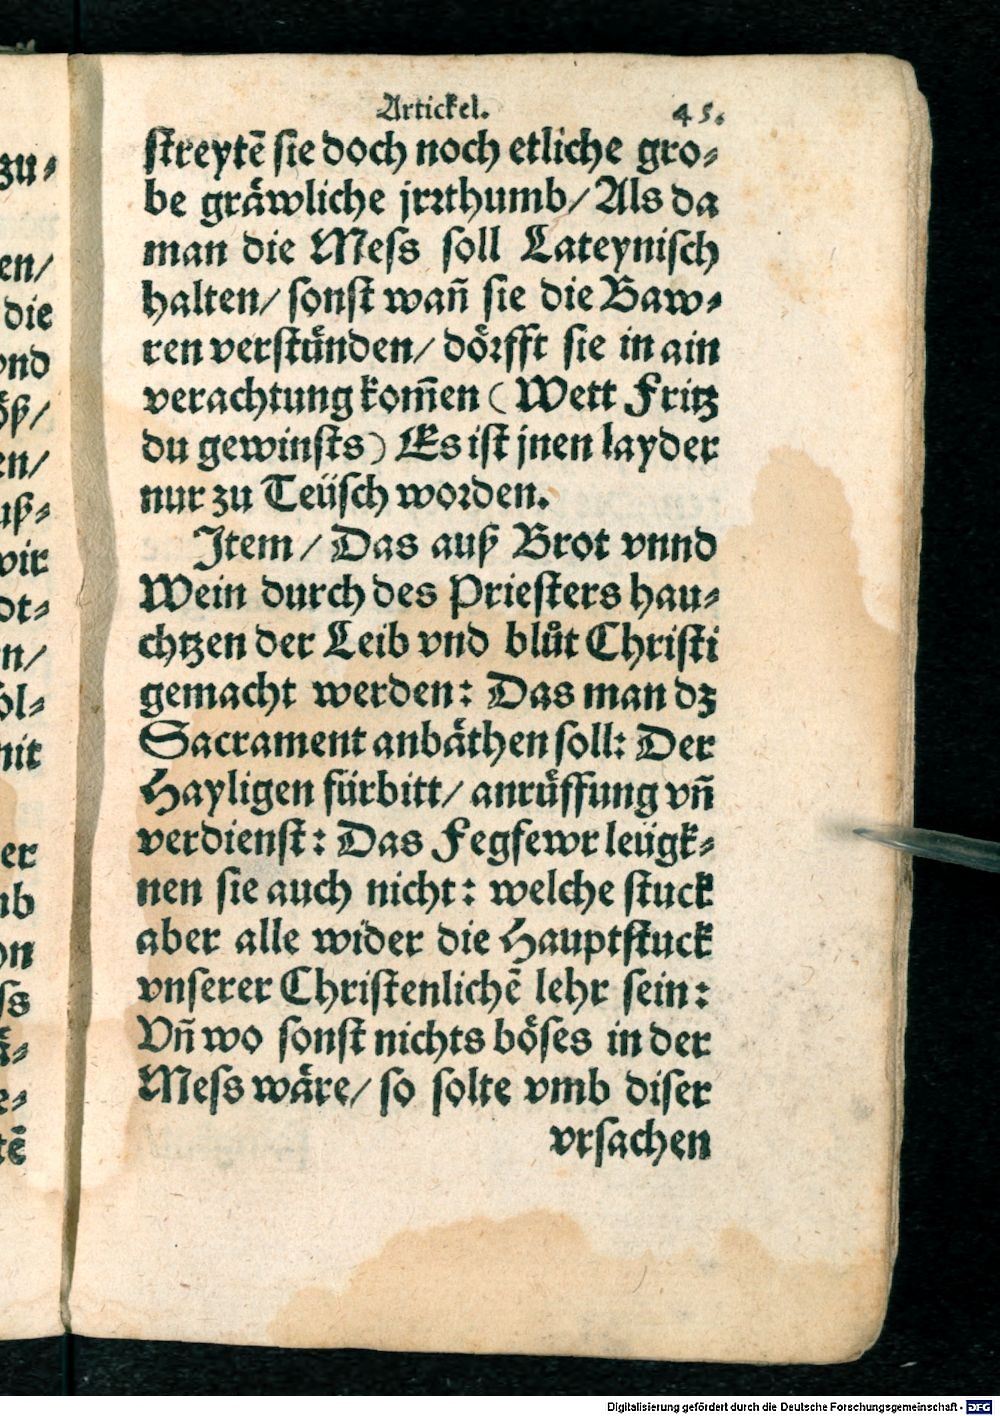 Artickel. 45.
ſtreytē sie doch noch etliche gro⸗
be gräwliche jrꝛthumb/ Als da
man die Meſs ſoll Lateyniſch
halten/ ſonſt wañ ſie die Baw⸗
ren verſtünden/ dörfft ſie in ain
verachtung kom̄en (Wett Fritz
du gewinſts) Es iſt jnen layder
nur zu Teüſch worden.
Jtem/ Das auß Brot vnnd
Wein durch des Prieſters hau⸗
chtzen der Leib vnd blůt Chriſti
gemacht werden: Das man dz
Sacrament anbäthen ſoll: Der
Hayligen fürbitt/ anrüffung vñ
verdienſt: Das Fegfewr leügk⸗
nen ſie auch nicht: welche ſtuck
aber alle wider die Hauptſtuck
vnſerer Chriſtenlichē lehr ſein:
Vñ wo ſonſt nichts böſes in der
Meſs wäre/ ſo ſolte vmb diſer
vrſachen
zu⸗
en/
die
vnd
öß/
en/
uß⸗
wir
ot⸗
n/
ol⸗
mit
er
mb
on
ſs
ä⸗
e⸗
tē
Digitalisierung gefördert durch die Deutsche Forschungsgemeinschaft - DFG